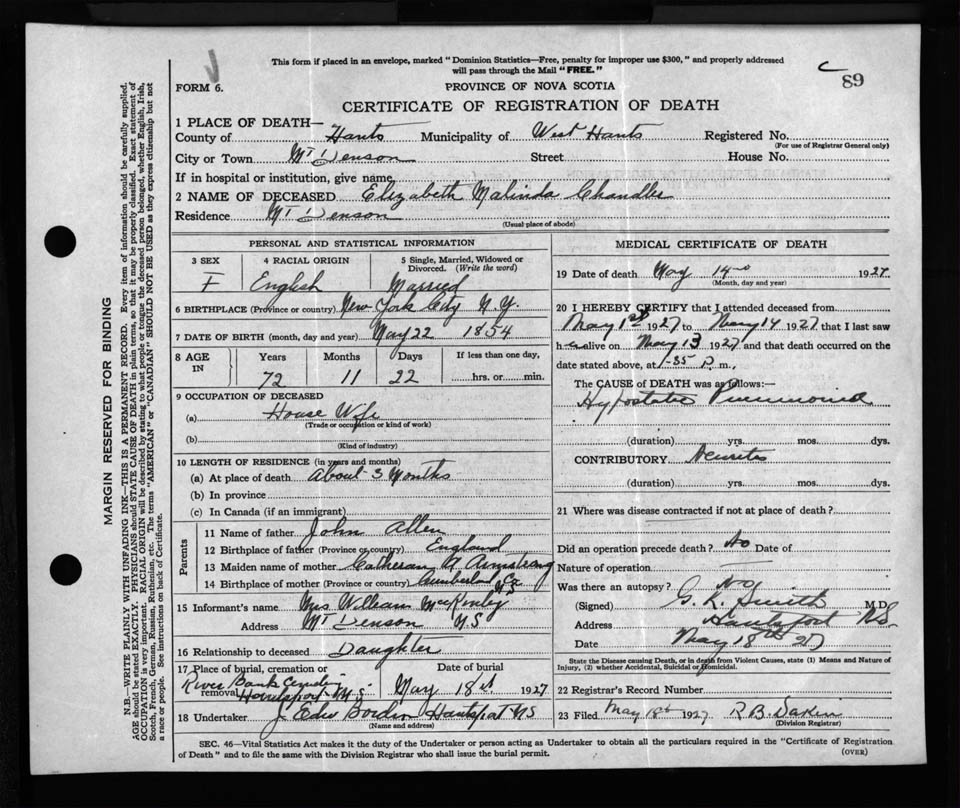 This form if placed in an envelope, marked "Dominion Statistics—Free, penalty for improper use $300," and properly addressed
will pass through the Mail "FREE."
C
89
FORM 6.
PROVINCE OF NOVA SCOTIA
CERTIFICATE OF REGISTRATION OF DEATH
MARGIN RESERVED FOR BINDING
N.B.—WRITE PLAINLY WITH UNFADING INK—THIS IS A PERMANENT RECORD. Every item of information should be carefully supplied.
AGE should be stated EXACTLY. PHYSICIANS should STATE CAUSE OF DEATH in plain terms, so that it may be properly classified. Exact statement of
OCCUPATION is very important. RACIAL ORIGIN will be described by stating to what people or tongue the deceased person belonged, whether English, Irish,
Scotch, French, German, Russian, Ruthenian, etc. The terms "AMERICAN" or "CANADIAN" SHOULD NOT BE USED as they express citizenship but not
a race or people. See instructions on back of Certificate.
1 PLACE OF DEATH—
County of Hants Municipality of West Hants Registered No.
(For use of Registrar General only)
City or Town Mt Denson Street House No.
If in hospital or institution, give name
2 NAME OF DECEASED Elizabeth Malinda Chandler
Residence Mt Denson
(Usual place of abode)
PERSONAL AND STATISTICAL INFORMATION
3 SEX F
4 RACIAL ORIGIN English
5 Single, Married, Widowed or Divorced. (Write the word) Married
6 BIRTHPLACE (Province or country) New York City N.Y.
7 DATE OF BIRTH (month, day and year) May 22 1854
8 AGE IN Years Months Days If less than one day,
72 11 22 hrs. or min.
9 OCCUPATION OF DECEASED
(a) House Wife
(Trade or occupation or kind of work)
(b)
(Kind of industry)
10 LENGTH OF RESIDENCE (in years and months)
(a) At place of death About 3 Months
(b) In province
(c) In Canada (if an immigrant)
Parents
11 Name of father John Allen
12 Birthplace of father (Province or country) England
13 Maiden name of mother Catheran A Armstrong
14 Birthplace of mother (Province or country) Cumberland Co NS
15 Informant's name Mrs. William McKinley
Address Mt Denson N.S
16 Relationship to deceased Daughter
17 Place of burial, cremation or removal Date of burial
River Bank
Hantsport N.S. May 18th 1927
18 Undertaker J Eder Borden Hantsport NS
(Name and address)
MEDICAL CERTIFICATE OF DEATH
19 Date of death May 14 1927.
(Month, day and year)
20 I HEREBY CERTIFY that I attended deceased from
May 1st 1927 to May 14 1927 that I last saw
h alive on May 13 1927 and that death occurred on the
date stated above, at 1-35 P. m.,
The CAUSE of DEATH was as follows:—
Hypostatic Pneumonia
(duration) yrs. mos. dys.
CONTRIBUTORY Neuritis
(duration) yrs. mos. dys.
21 Where was disease contracted if not at place of death?
Did an operation precede death? No Date of
Nature of operation
Was there an autopsy? No
(Signed) G. L. Smith M.D.
Address Hantsport NS.
Date May 18th 27
State the Disease causing Death, or in death from Violent Causes, state (1) Means and Nature of
Injury, (2) whether Accidental, Suicidal or Homicidal.
22 Registrar's Record Number
23 Filed May 18th 1927 R B. Dakin
(Division Registrar)
SEC. 46—Vital Statistics Act makes it the duty of the Undertaker or person acting as Undertaker to obtain all the particulars required in the "Certificate of Registration
of Death" and to file the same with the Division Registrar who shall issue the burial permit.
(OVER)